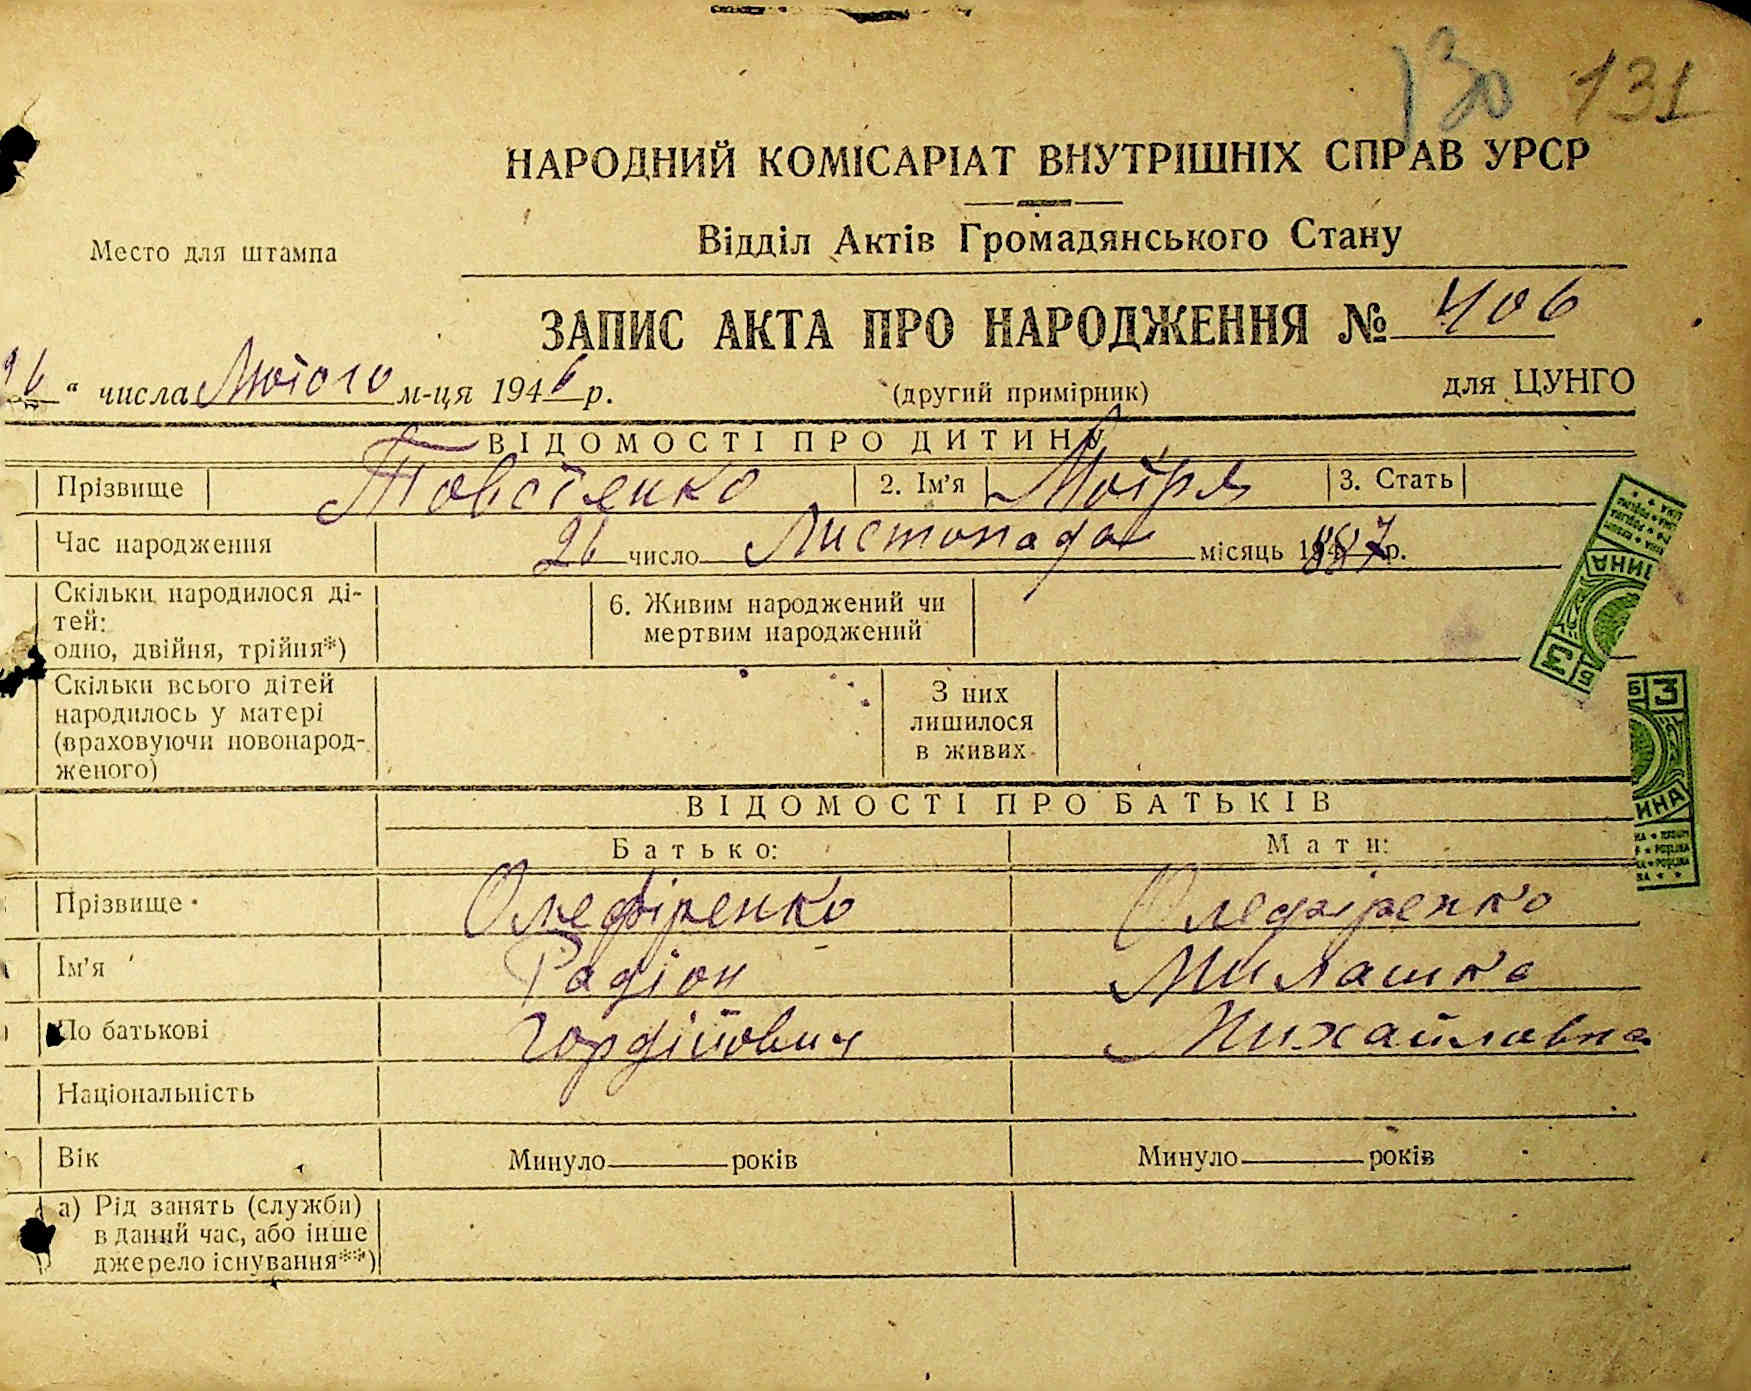 130 131
НАРОДНИЙ КОМІСАРІАТ ВНУТРІШНІХ СПРАВ УРСР
Место для штампа
Відділ Актів Громадянського Стану
ЗАПИС АКТА ПРО НАРОДЖЕННЯ № 406
26 " числа Лютого м-ця 1946 р. (другий примірник) для ЦУНГО
ВІДОМОСТІ ПРО ДИТИНУ
Прізвище Товстенко 2. Ім'я Мотря 3. Стать
Час народження 26 число Листопада місяць 1887 р.
Скільки народилося ді-
тей:
одно, двійня, трійня*)
6. Живим народжений чи
мертвим народжений
Скільки всього дітей
народилось у матері
(враховуючи новонарод-
женого)
З них
лишилося
в живих
ВІДОМОСТІ ПРО БАТЬКІВ
Батько: Мати:
Прізвище Олефіренко Олефіренко
Ім'я Радіон Милашка
По батькові Гордійович Михайловна
Національність
Вік Минуло років Минуло років
а) Рід занять (служби)
в даний час, або інше
джерело існування**)
3
3